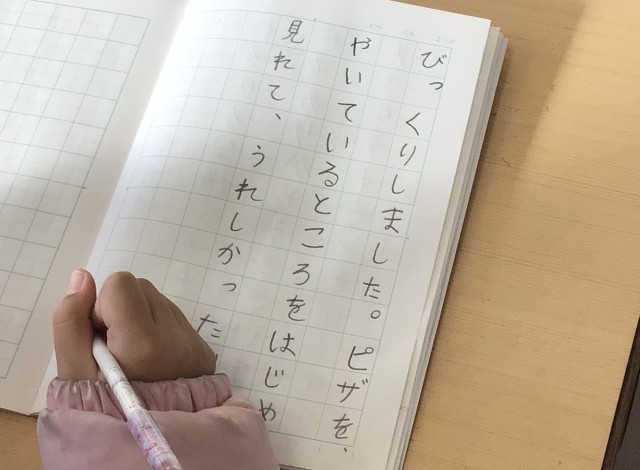 びっくりしました。ピザを、
やいているところをはじめ
見れて、うれしかった